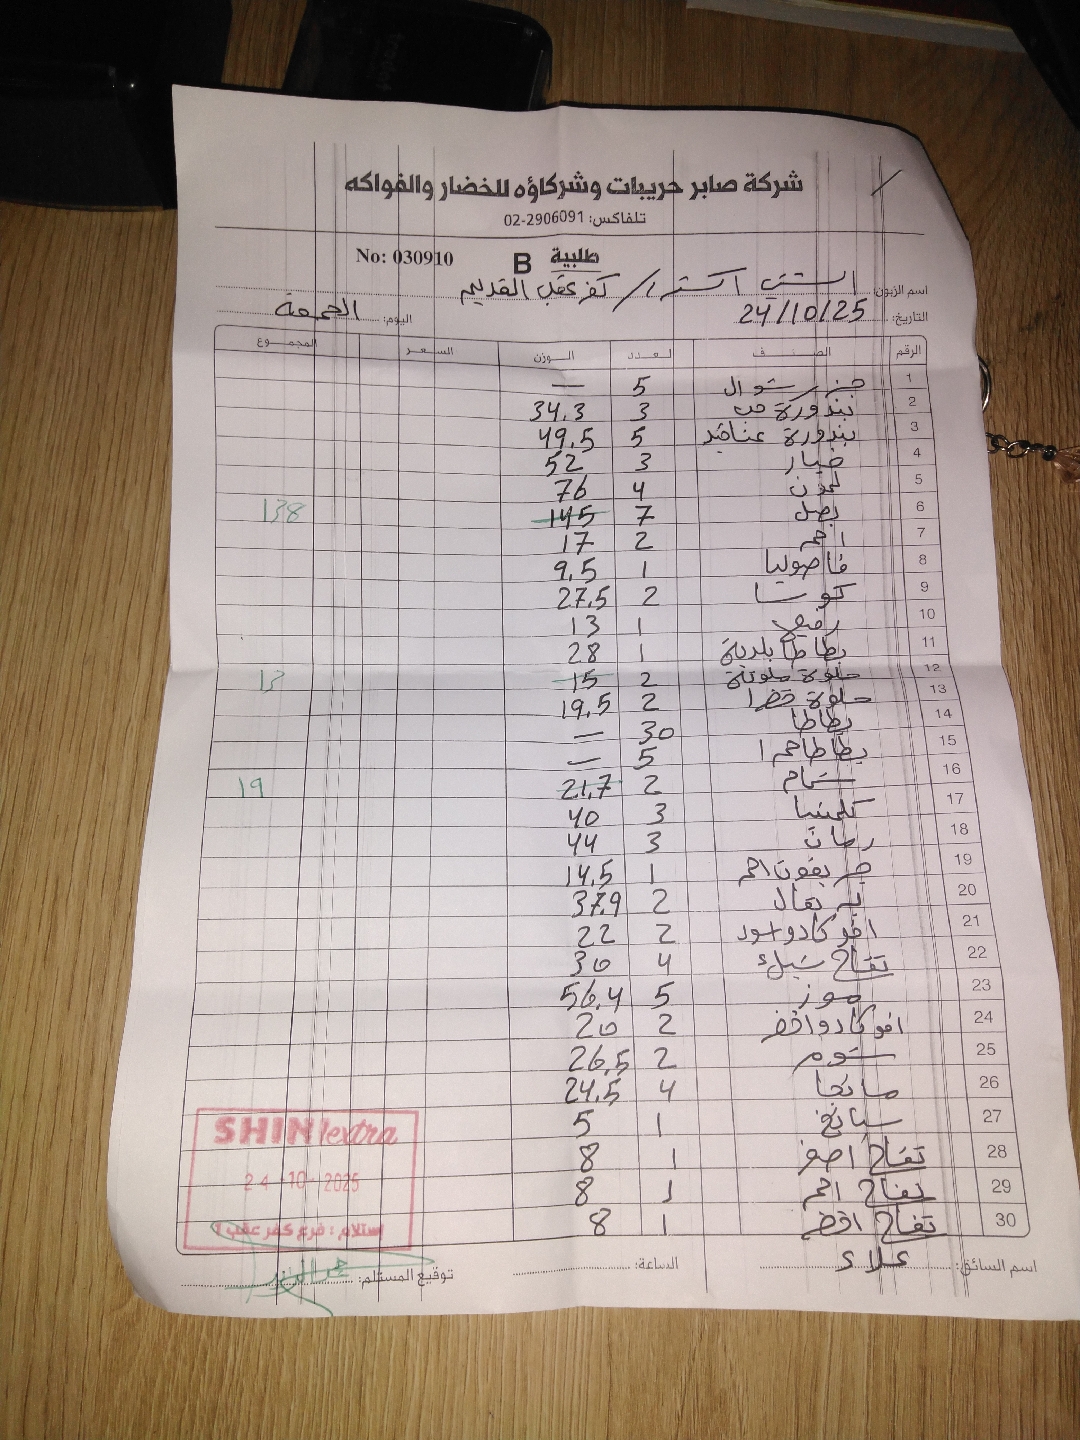 شركة صابر حريبات وشركاؤه للخضار والفواكه
تلفاكس: 02-2906091
No: 030910 B طلبية
اسم الزبون: الشني اكسترا / كفر عقب القديم
التاريخ: 24/10/25 اليوم: الجمعة
الرقم الصنف العدد الوزن السعر المجموع
1 جزر شوال 5 —
2 بندورة حب 3 34.3
3 بندورة عناقيد 5 49.5
4 خيار 3 52
5 لمون 4 76
6 بصل 7 145 138
7 احمر 2 17
8 فاصوليا 1 9.5
9 كوسا 2 27.5
10 رفيع 1 13
11 بطاطا بلدية 1 28
12 حلوة ملونة 2 15 13
13 حلوة خضرا 2 19.5
14 بطاطا 30 —
15 بطاطا حمرا 5 —
16 شمام 2 21.7 19
17 كلمنتينا 3 40
18 رمان 3 44
19 جريفون احمر 1 14.5
20 برتقال 2 37.9
21 افوكادو اسود 2 22
22 تفاح 4 30
23 موز 5 56.4
24 افوكادو اخضر 2 20
25 ثوم 2 26.5
26 مانجا 4 24.5
27 سبانخ 1 5
28 تفاح اصفر 1 8
29 تفاح احمر 1 8
30 تفاح اخضر 1 8
SHINI extra
24-10-2025
استلام : فرع كفر عقب 1
اسم السائق: علاء الساعة: توقيع المستلم: